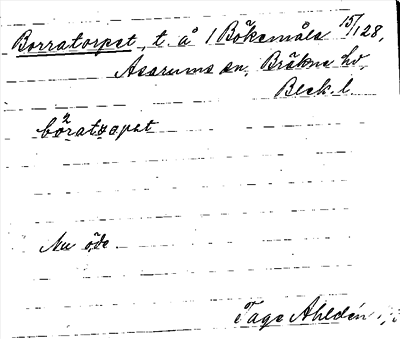 Borratorpet, t. å 1 Bökemåla 15/1 28,
Asarums sn, Bräkne hd,
Blek. l.
bö̀ratorpet
Nu öde
Tage Ahldén